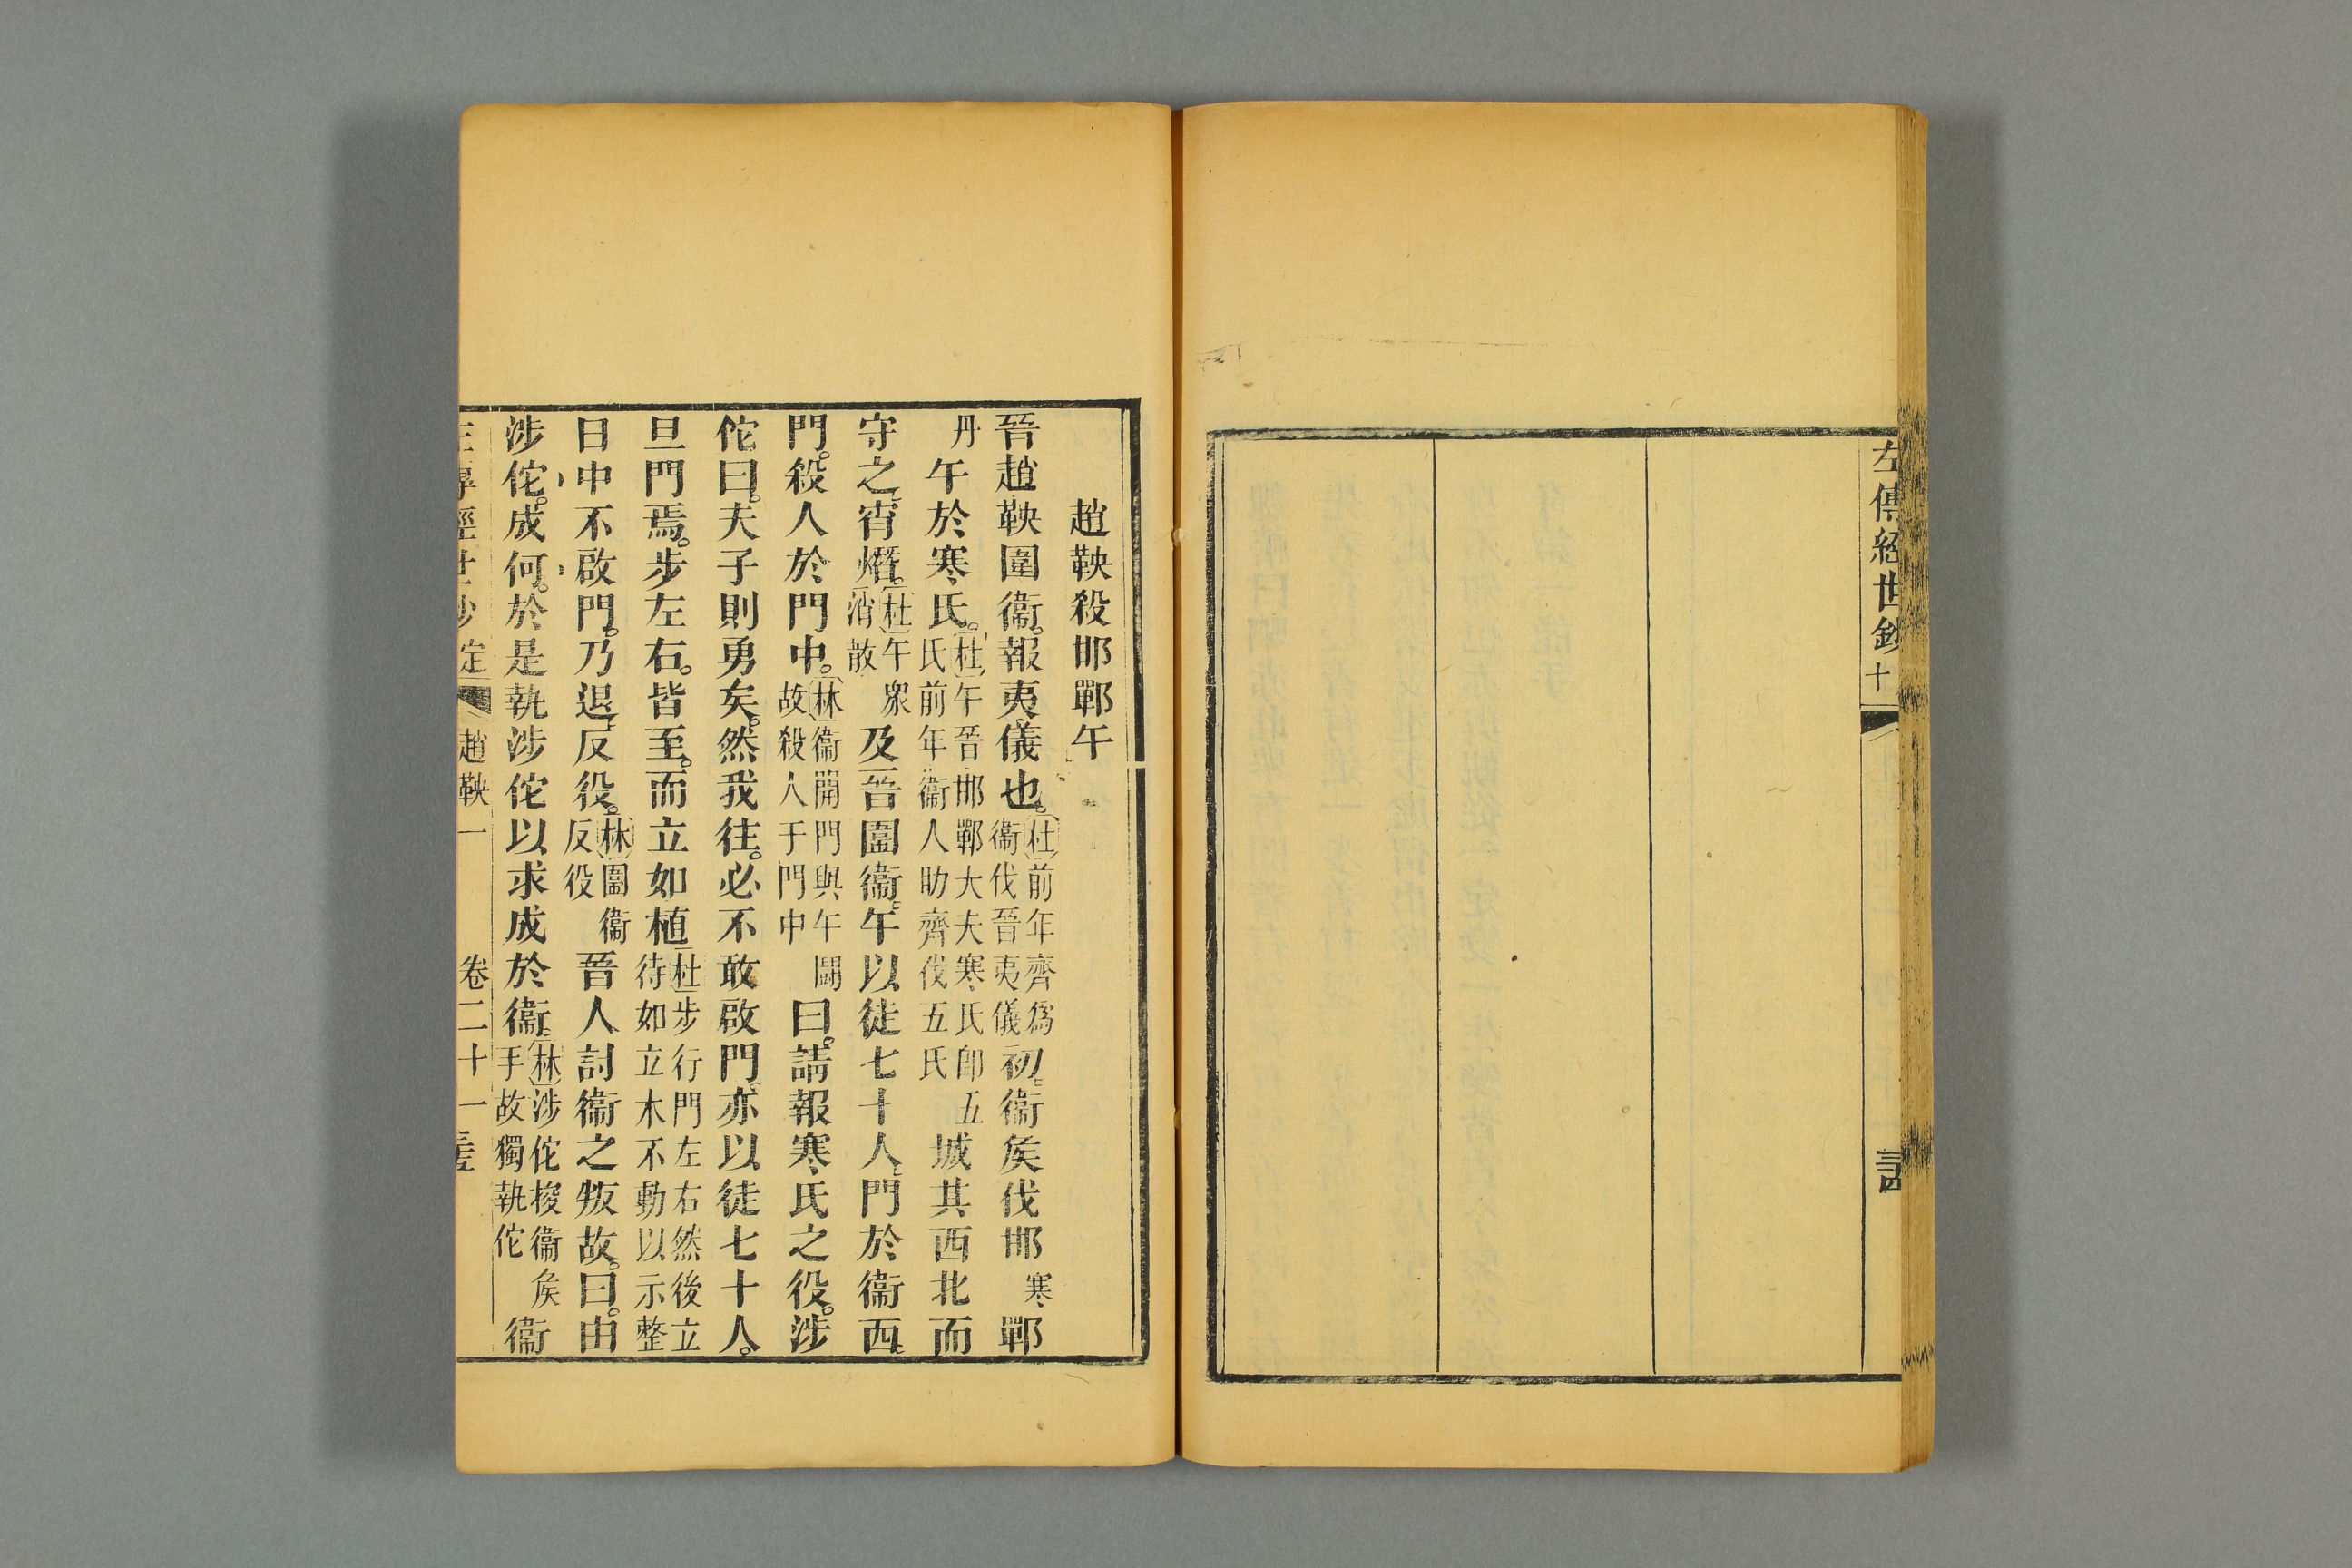 左傳經世鈔 十
三四
趙鞅殺邯鄲午
晉趙鞅圍衞。報夷儀也。杜前年齊爲衞伐晉夷儀初。衞侯伐邯寒鄲
丹午於寒氏。杜午晉邯鄲大夫寒氏卽五氏前年衞人助齊伐五氏城其西北而
守之。宵熸。杜午衆消散及晉圍衞。午以徒七十人。門於衞西
門。殺人於門中。林衞開門與午鬭故殺人于門中曰。請報寒氏之役。涉
佗曰。夫子則勇矣。然我往。必不敢啟門。亦以徒七十人。
旦門焉。步左右。皆至。而立如植杜步行門左右然後立待如立木不動以示整
日中不啟門。乃退。反役。林圍衞反役晉人討衞之叛故。曰。由
涉佗。成何。於是執涉佗以求成於衞。林涉佗捘衞侯手故獨執佗衞
趙鞅一 卷二十一